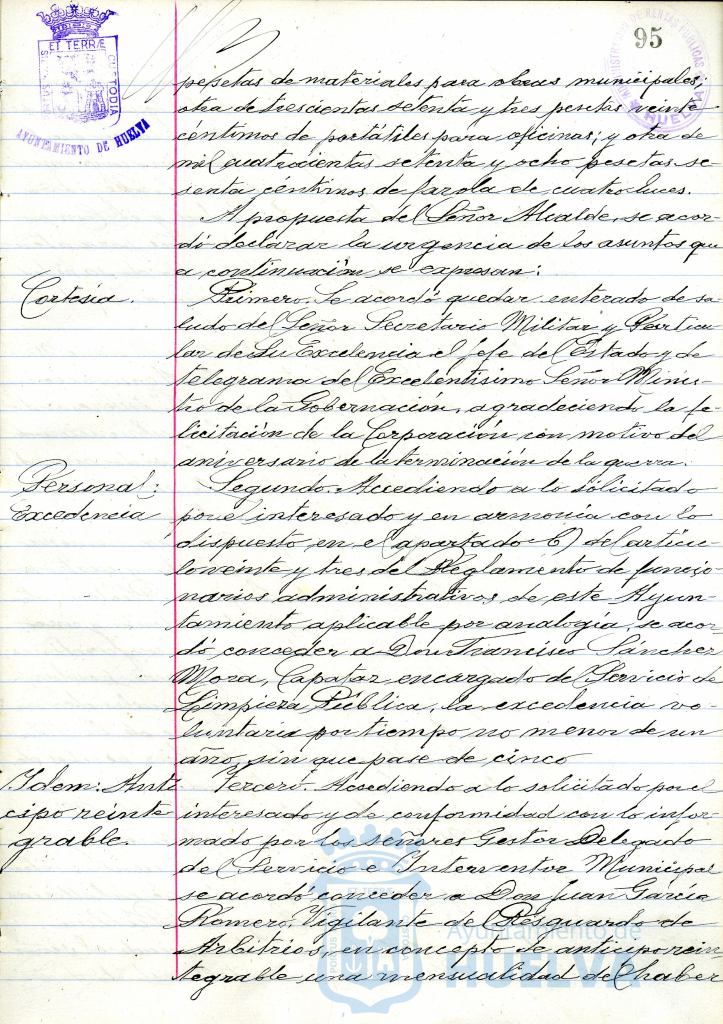 95
ET TERRÆ
CUSTODIA
PORTUS MARIS
AYUNTAMIENTO DE HUELVA
HUELVA
pesetas de materiales para obras municipales;
otra de trescientas setenta y tres pesetas veinte
céntimos de portátiles para oficinas; y otra de
mil cuatrocientas setenta y ocho pesetas se-
senta céntimos de farola de cuatro luces.
A propuesta del Señor Alcalde, se acor-
dó declarar la urgencia de los asuntos que
a continuación se expresan:
Cortesía.
Primero. Se acordó quedar enterado de sa-
ludo del Señor Secretario Militar y Particu-
lar de Su Excelencia el Jefe del Estado y de
telegrama del Excelentísimo Señor Minis-
tro de la Gobernación, agradeciendo la fe-
licitación de la Corporación con motivo del
aniversario de la terminación de la guerra.
Personal:
Excedencia
Segundo. Accediendo a lo solicitado
por el interesado y en armonía con lo
dispuesto en el apartado b) del artícu-
lo veinte y tres del Reglamento de funcio-
narios administrativos de este Ayun-
tamiento aplicable por analogía, se acor-
dó conceder a Don Francisco Sánchez
Mora, Capataz encargado del Servicio de
Limpieza Pública, la excedencia vo-
luntaria por tiempo no menor de un
año, sin que pase de cinco
Idem: Anti-
cipo reinte
grable.
Tercero. Accediendo a lo solicitado por el
interesado y de conformidad con lo infor-
mado por los señores Gestor Delegado
del Servicio e Interventor Municipal
se acordó conceder a Don Juan García
Romero, Vigilante del Resguardo de
Arbitrios, en concepto de anticipo rein-
tegrable una mensualidad del haber
Ayuntamiento de
HUELVA